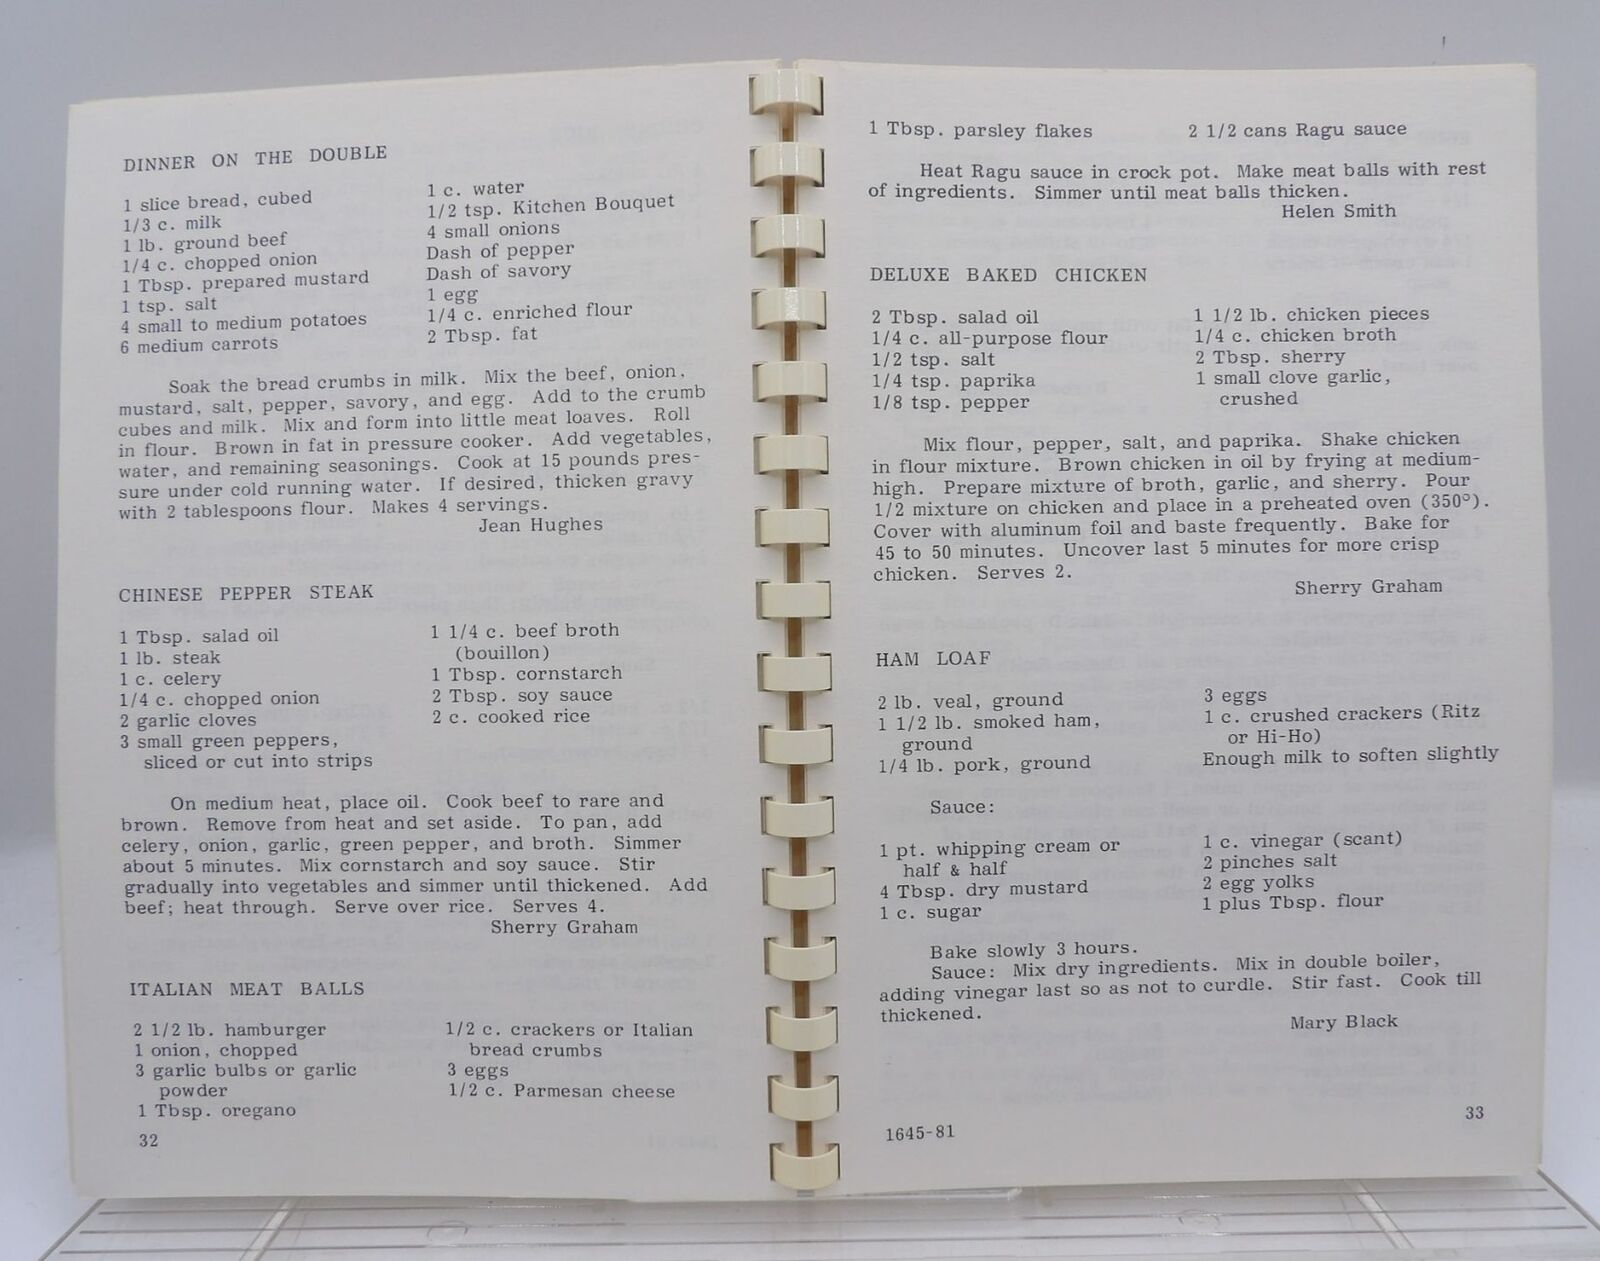 DINNER ON THE DOUBLE
1 slice bread, cubed
1/3 c. milk
1 lb. ground beef
1/4 c. chopped onion
1 Tbsp. prepared mustard
1 tsp. salt
4 small to medium potatoes
6 medium carrots
1 c. water
1/2 tsp. Kitchen Bouquet
4 small onions
Dash of pepper
Dash of savory
1 egg
1/4 c. enriched flour
2 Tbsp. fat
Soak the bread crumbs in milk. Mix the beef, onion,
mustard, salt, pepper, savory, and egg. Add to the crumb
cubes and milk. Mix and form into little meat loaves. Roll
in flour. Brown in fat in pressure cooker. Add vegetables,
water, and remaining seasonings. Cook at 15 pounds pres-
sure under cold running water. If desired, thicken gravy
with 2 tablespoons flour. Makes 4 servings.
Jean Hughes
CHINESE PEPPER STEAK
1 Tbsp. salad oil
1 lb. steak
1 c. celery
1/4 c. chopped onion
2 garlic cloves
3 small green peppers,
sliced or cut into strips
1 1/4 c. beef broth
(bouillon)
1 Tbsp. cornstarch
2 Tbsp. soy sauce
2 c. cooked rice
On medium heat, place oil. Cook beef to rare and
brown. Remove from heat and set aside. To pan, add
celery, onion, garlic, green pepper, and broth. Simmer
about 5 minutes. Mix cornstarch and soy sauce. Stir
gradually into vegetables and simmer until thickened. Add
beef; heat through. Serve over rice. Serves 4.
Sherry Graham
ITALIAN MEAT BALLS
2 1/2 lb. hamburger
1 onion, chopped
3 garlic bulbs or garlic
powder
1 Tbsp. oregano
1/2 c. crackers or Italian
bread crumbs
3 eggs
1/2 c. Parmesan cheese
32
1 Tbsp. parsley flakes
2 1/2 cans Ragu sauce
Heat Ragu sauce in crock pot. Make meat balls with rest
of ingredients. Simmer until meat balls thicken.
Helen Smith
DELUXE BAKED CHICKEN
2 Tbsp. salad oil
1/4 c. all-purpose flour
1/2 tsp. salt
1/4 tsp. paprika
1/8 tsp. pepper
1 1/2 lb. chicken pieces
1/4 c. chicken broth
2 Tbsp. sherry
1 small clove garlic,
crushed
Mix flour, pepper, salt, and paprika. Shake chicken
in flour mixture. Brown chicken in oil by frying at medium-
high. Prepare mixture of broth, garlic, and sherry. Pour
1/2 mixture on chicken and place in a preheated oven (350°).
Cover with aluminum foil and baste frequently. Bake for
45 to 50 minutes. Uncover last 5 minutes for more crisp
chicken. Serves 2.
Sherry Graham
HAM LOAF
2 lb. veal, ground
1 1/2 lb. smoked ham,
ground
1/4 lb. pork, ground
3 eggs
1 c. crushed crackers (Ritz
or Hi-Ho)
Enough milk to soften slightly
Sauce:
1 pt. whipping cream or
half & half
4 Tbsp. dry mustard
1 c. sugar
1 c. vinegar (scant)
2 pinches salt
2 egg yolks
1 plus Tbsp. flour
Bake slowly 3 hours.
Sauce: Mix dry ingredients. Mix in double boiler,
adding vinegar last so as not to curdle. Stir fast. Cook till
thickened.
Mary Black
1645-81
33